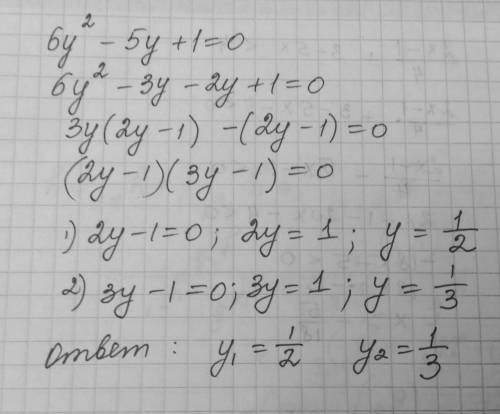 6y² - 5y + 1 = 0
6y² - 3y - 2y + 1 = 0
3y(2y - 1) - (2y - 1) = 0
(2y - 1)(3y - 1) = 0
1) 2y - 1 = 0; 2y = 1; y = 1/2
2) 3y - 1 = 0; 3y = 1; y = 1/3
Ответ: y₁ = 1/2 y₂ = 1/3